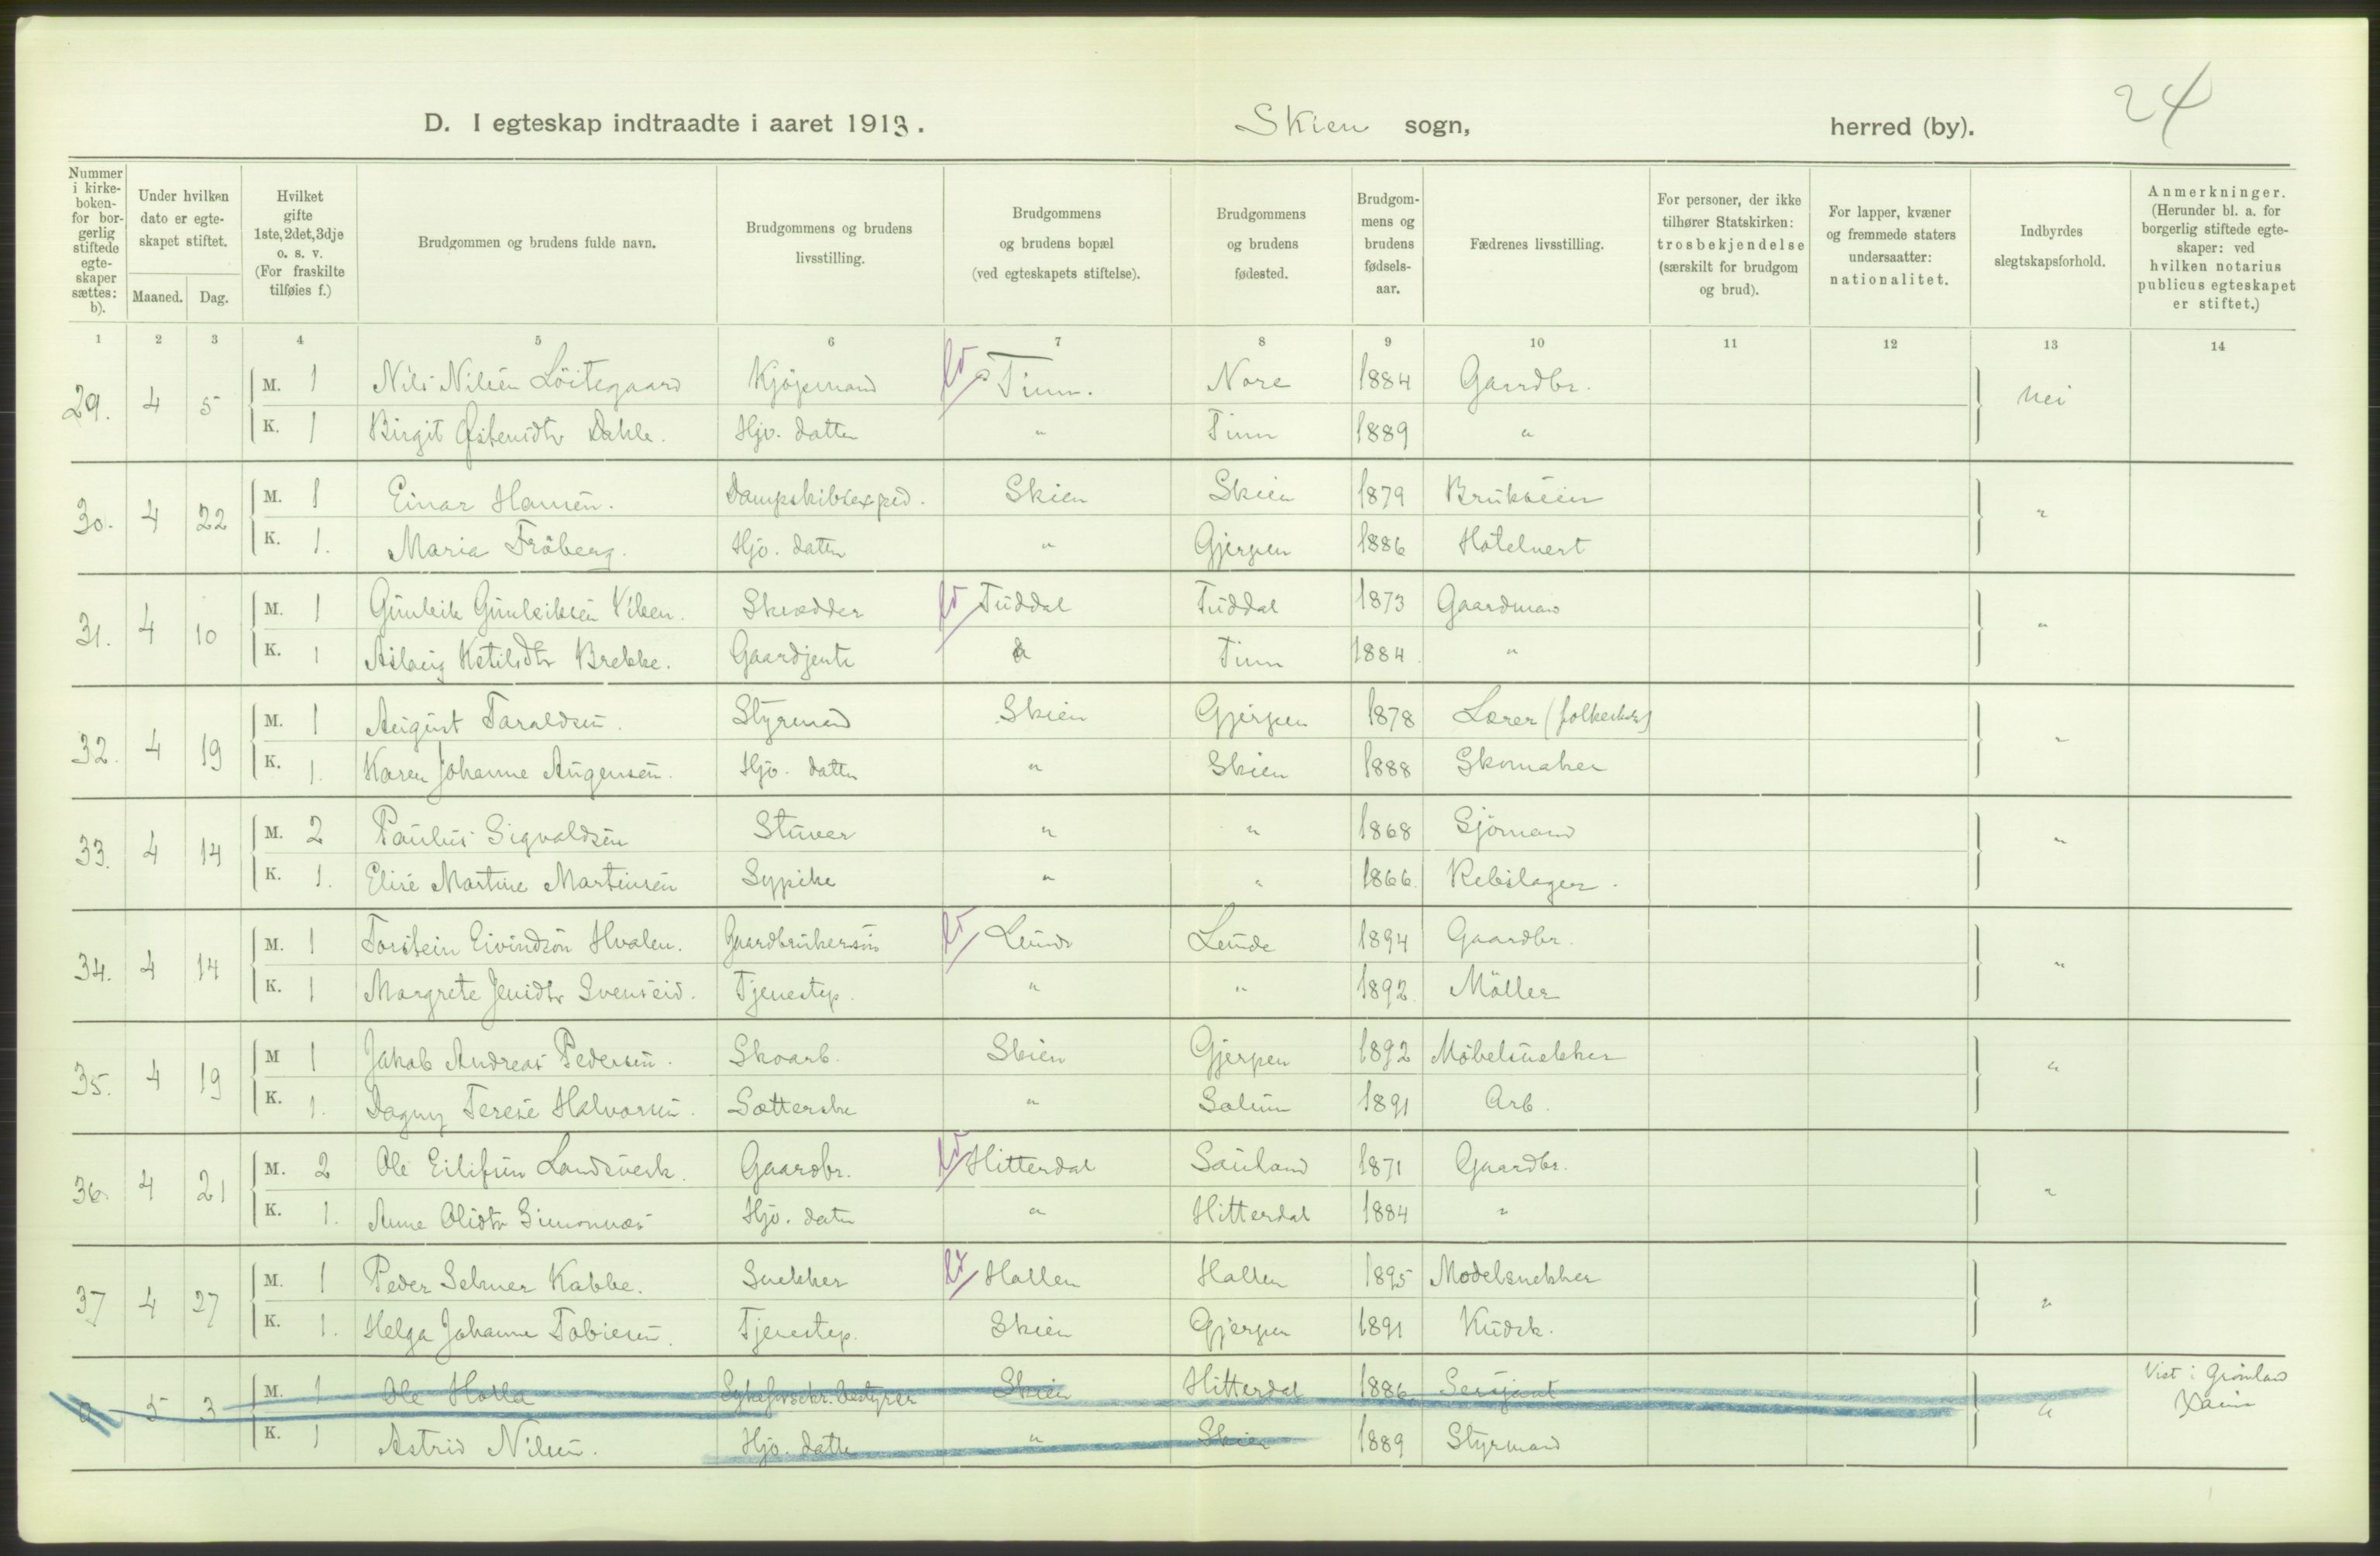 24
D. I egteskap indtraadte i aaret 1913. Skien sogn, herred (by).
Nummer i kirke-boken- for bor-gerlig stiftede egte-skaper sættes: b).
Under hvilken dato er egte-skapet stiftet.
Maaned. Dag.
Hvilket gifte 1ste, 2det, 3dje o. s. v. (For fraskilte tilføies f.)
Brudgommen og brudens fulde navn.
Brudgommens og brudens livsstilling.
Brudgommens og brudens bopæl (ved egteskapets stiftelse).
Brudgommens og brudens fødested.
Brudgom-mens og brudens fødsels-aar.
Fædrenes livsstilling.
For personer, der ikke tilhører Statskirken: trosbekjendelse (særskilt for brudgom og brud).
For lapper, kvæner og fremmede staters undersaatter: nationalitet.
Indbyrdes slegtskapsforhold.
Anmerkninger. (Herunder bl. a. for borgerlig stiftede egte-skaper: ved hvilken notarius publicus egteskapet er stiftet.)
1 2 3 4 5 6 7 8 9 10 11 12 13 14
29. 4 5 M. 1 Nils Nilsen Löitegaard Kjöpmand Tinn. Nore 1884 Gaardbr. Nei
K. 1 Birgit Østensdtr Dahle. Hjv. datter " Tinn 1889 "
30. 4 22 M. 1 Einar Hansen. Dampskibsexped. Skien Skien 1879 Brukseier "
K. 1. Maria Fröberg. Hjv. datter " Gjerpen 1886 Hotelvert
31. 4 10 M. 1 Gunleik Gunleiksen Viken. Skrædder Tuddal Tuddal 1873 Gaardmand "
K. 1 Aslaug Ketilsdtr Brekke. Gaardjente " Tinn 1884 "
32. 4 19 M. 1 August Taraldsen. Styrmand Skien Gjerpen 1878 Lærer (folkeskole) "
K. 1. Karen Johanne Augensen. Hjv. datter " Skien 1888 Skomaker
33. 4 14 M. 2 Paulus Sigvaldsen Stuver " " 1868 Sjömand "
K. 1. Elise Martine Martinsen Sypike " " 1866. Rebslager.
34. 4 14 M. 1 Torstein Eivindson Hvalen. Gaardbrukersön Lunde Lunde 1894 Gaardbr. "
K. 1 Margrete Jensdtr Svenseid. Tjenestep. " " 1892. Möller
35. 4 19 M 1 Jakob Andreas Pedersen. Skoarb. Skien Gjerpen 1892 Möbelsnekker "
K. 1. Dagny Terese Halvorsen. Sætterske " Solum 1891 Arb.
36. 4 21 M. 2 Ole Eilifsen Landsverk. Gaardbr. Hitterdal Sauland 1871 Gaardbr. "
K. 1. Anne Olsdtr Simonnæs Hjv. datter " Hitterdal 1884 "
37 4 27 M. 1 Peder Selmer Kabbe. Snekker Hollen Hollen 1895 Modelsnekker "
K. 1. Helga Johanne Tobiesen. Tjenestep. Skien Gjerpen 1891 Kudsk.
5 3 M. 1 Ole Holla Skien Hitterdal 1886 Sersjant " Viet i Grönland
K. 1 Astrid Nilsen. Hjv. datter " Skien 1889 Styrmand